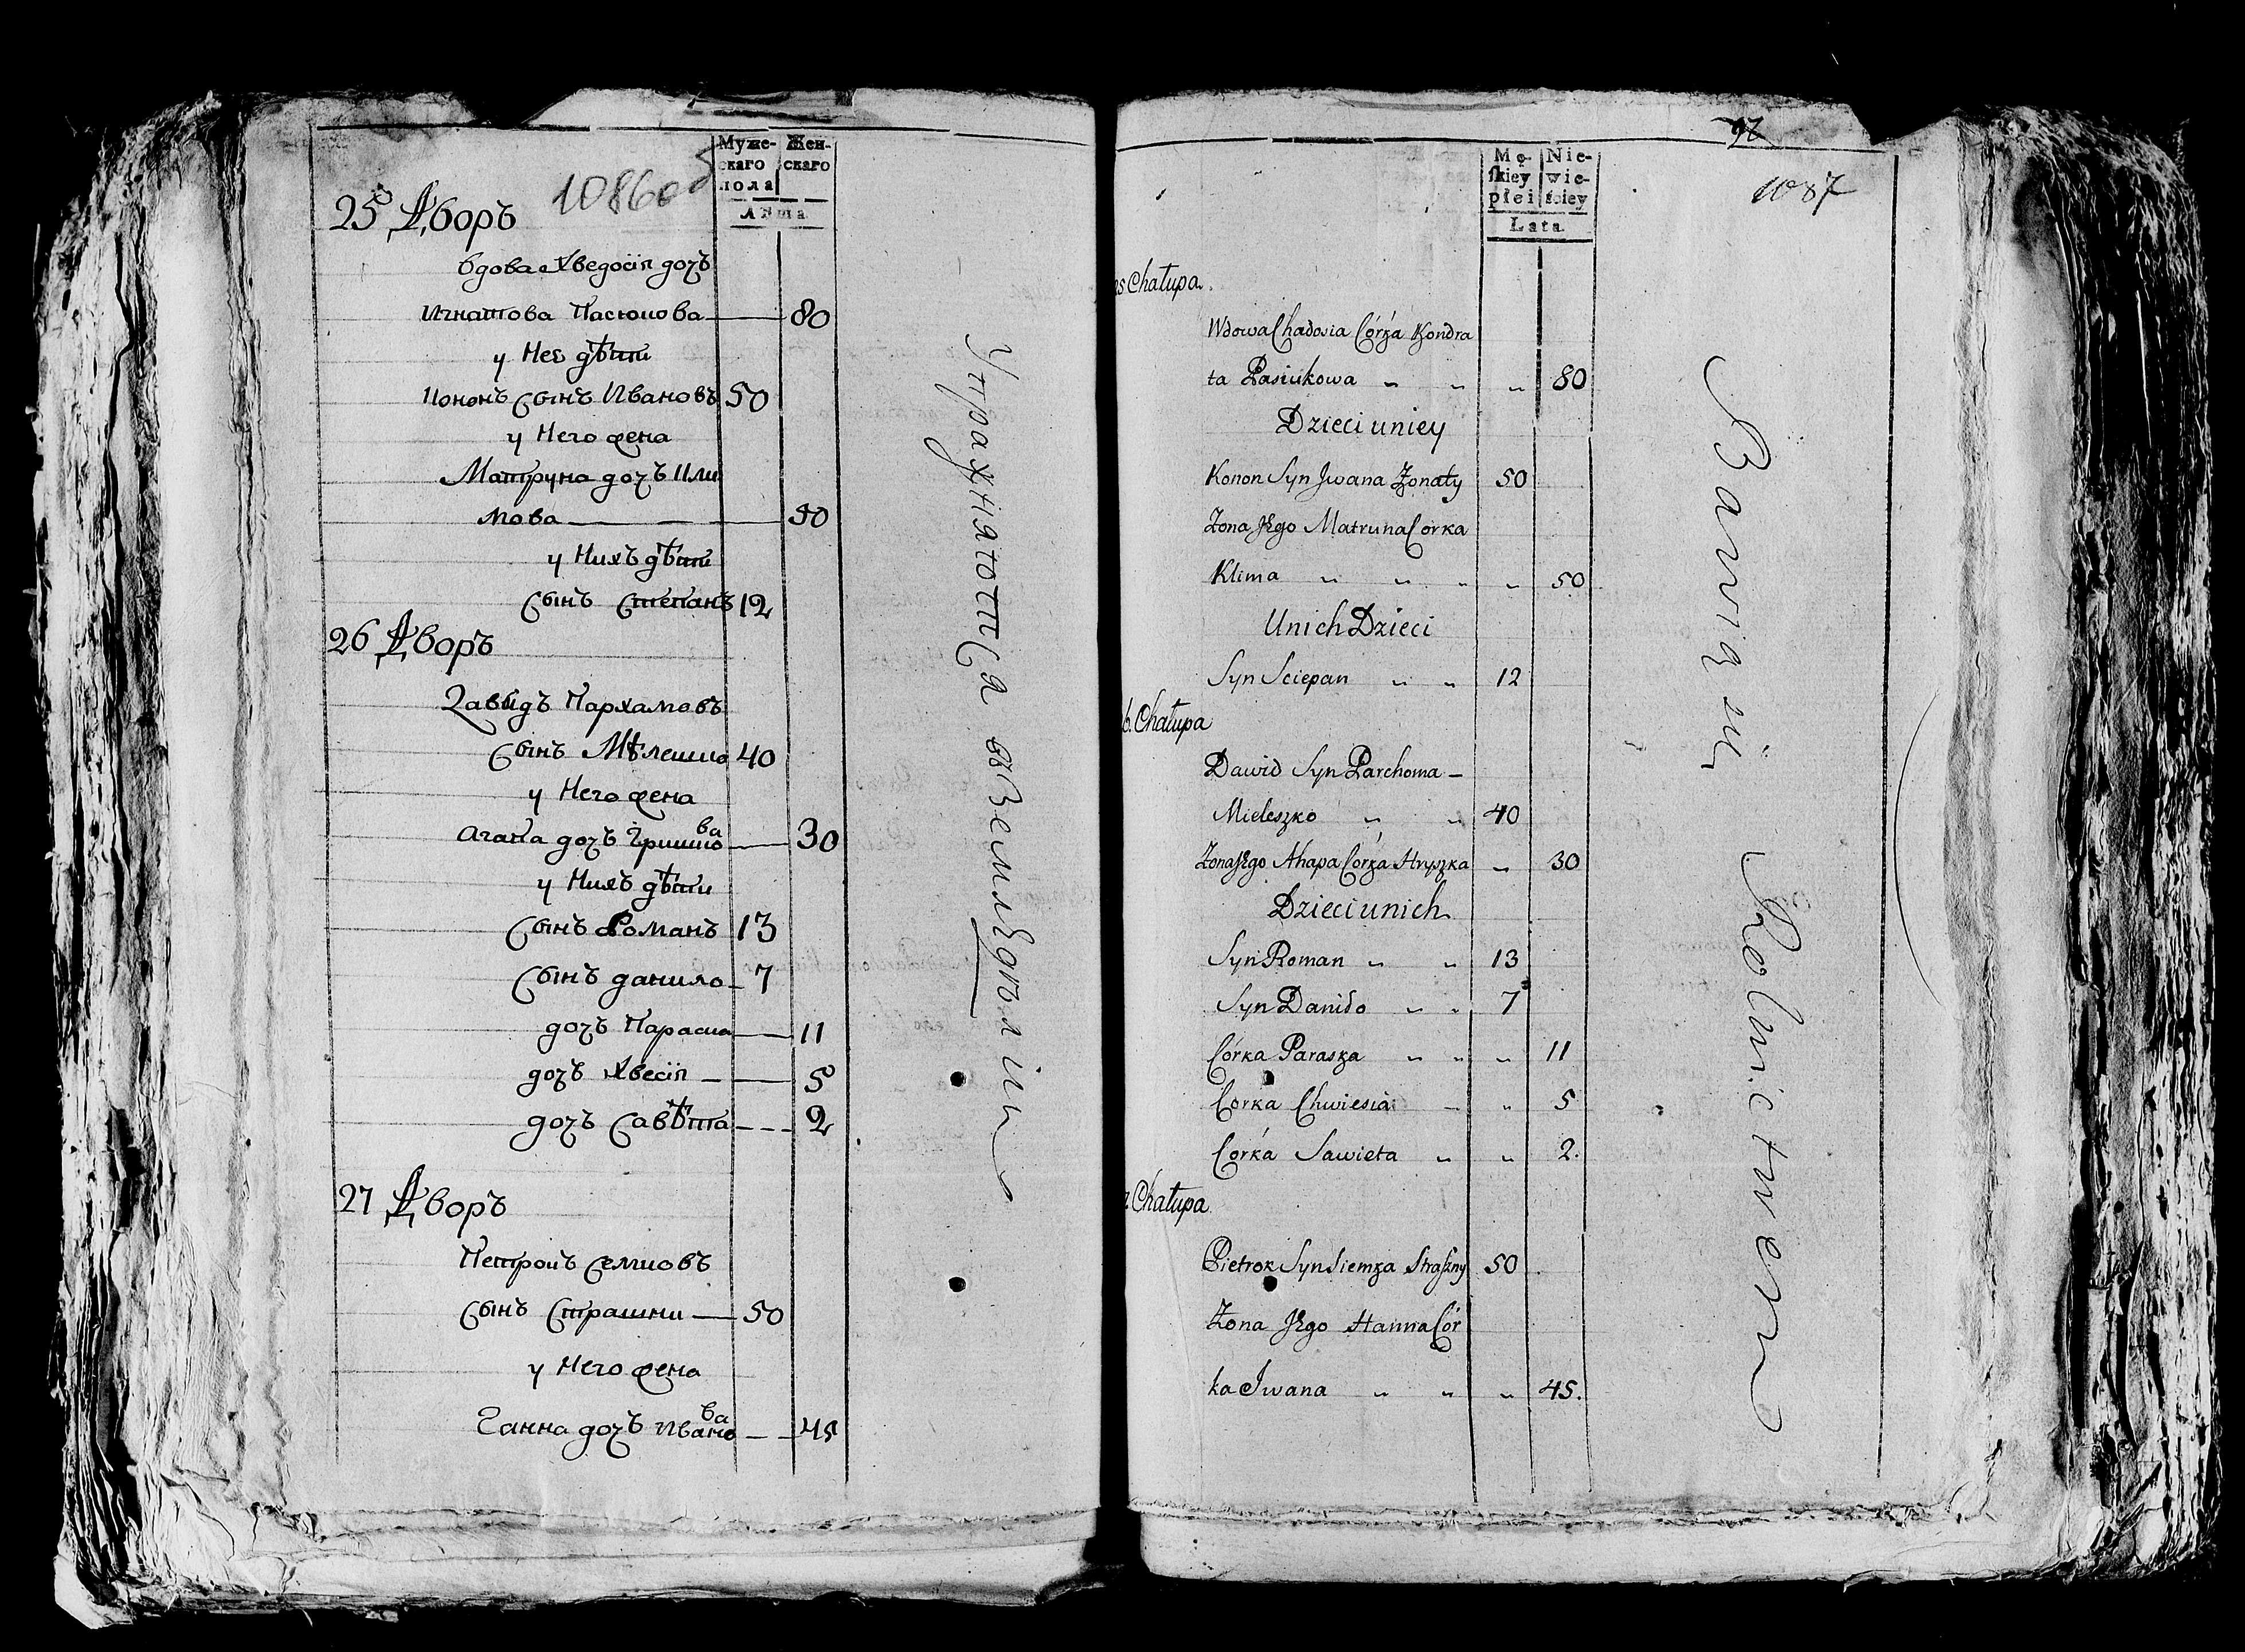 Муже-
скаго
пола
Жен-
скаго
Лѣта
1086об
25 Дворъ
Вдова Хведосія дочъ
Игнатова Пасюкова — 80
у Нее дѣти
Кононъ Сынъ Ивановъ 50
у Него жена
Матруна дочъ Кли
мова — 50
у Нихъ дѣти
Сынъ Степанъ 12
26 Дворъ
Давыдъ Пархамовъ
Сынъ Мѣлешко 40
у Него жена
Агапа дочъ Гришкова — 30
у Нихъ дѣти
Сынъ Романъ 13
Сынъ данило 7
дочъ Параска — 11
дочъ Хвесія — 5
дочъ Савѣта — 2
27 Дворъ
Петрокъ Семковъ
Сынъ Страшни — 50
у Него жена
Ганна дочъ Иванова — 45
УпражняютСя въ Земледѣліи
Mę-
skiey
płei
Nie-
wie-
ściey
Lata
1087
25 Chałupa.
Wdowa Chadosia Córka Kondra
ta Pasiukowa " " " 80
Dzieci u niey
Konon Syn Jwana Żonaty 50
Żona Jego Matruna Corka
Klima " " " " 50
U nich Dzieci
Syn Sciepan " " 12
6. Chałupa
Dawid Syn Parchoma –
Mieleszko " " 40
Żona Jego Ahapa Córka Hryszka " 30
Dzieci u nich
Syn Roman " " 13
Syn Daniło " " 7
Córka Paraska " " " 11
Corka Chwiesia – " 5
Corka Sawieta " " 2.
Chałupa
Pietrok Syn Siemka Straszny 50
Żona Jego Hanna Cór
ka Jwana " " " 45.
Bawią się Rolnictwem